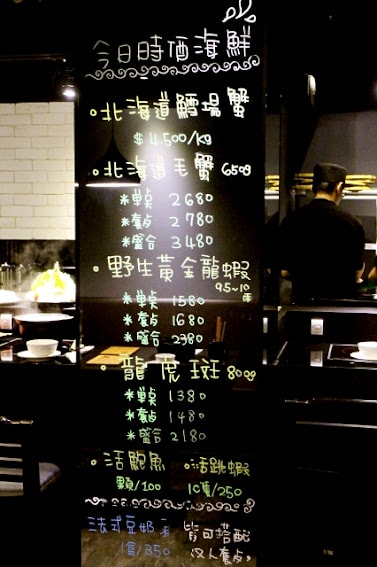 今日時価海鮮
。北海道鱈場蟹
$4,500/kg
。北海道毛蟹 650g
*單点 2680
*套点 2780
*盛合 3480
。野生黃金龍蝦
9.5~10兩
*單点 1580
*套点 1680
*盛合 2380
。龍虎斑 800g
*單点 1380
*套点 1480
*盛合 2180
。活鮑魚 。活跳蝦
顆/100 10隻/250
法式豆奶 皆可搭配
1盒/350 双人套点。